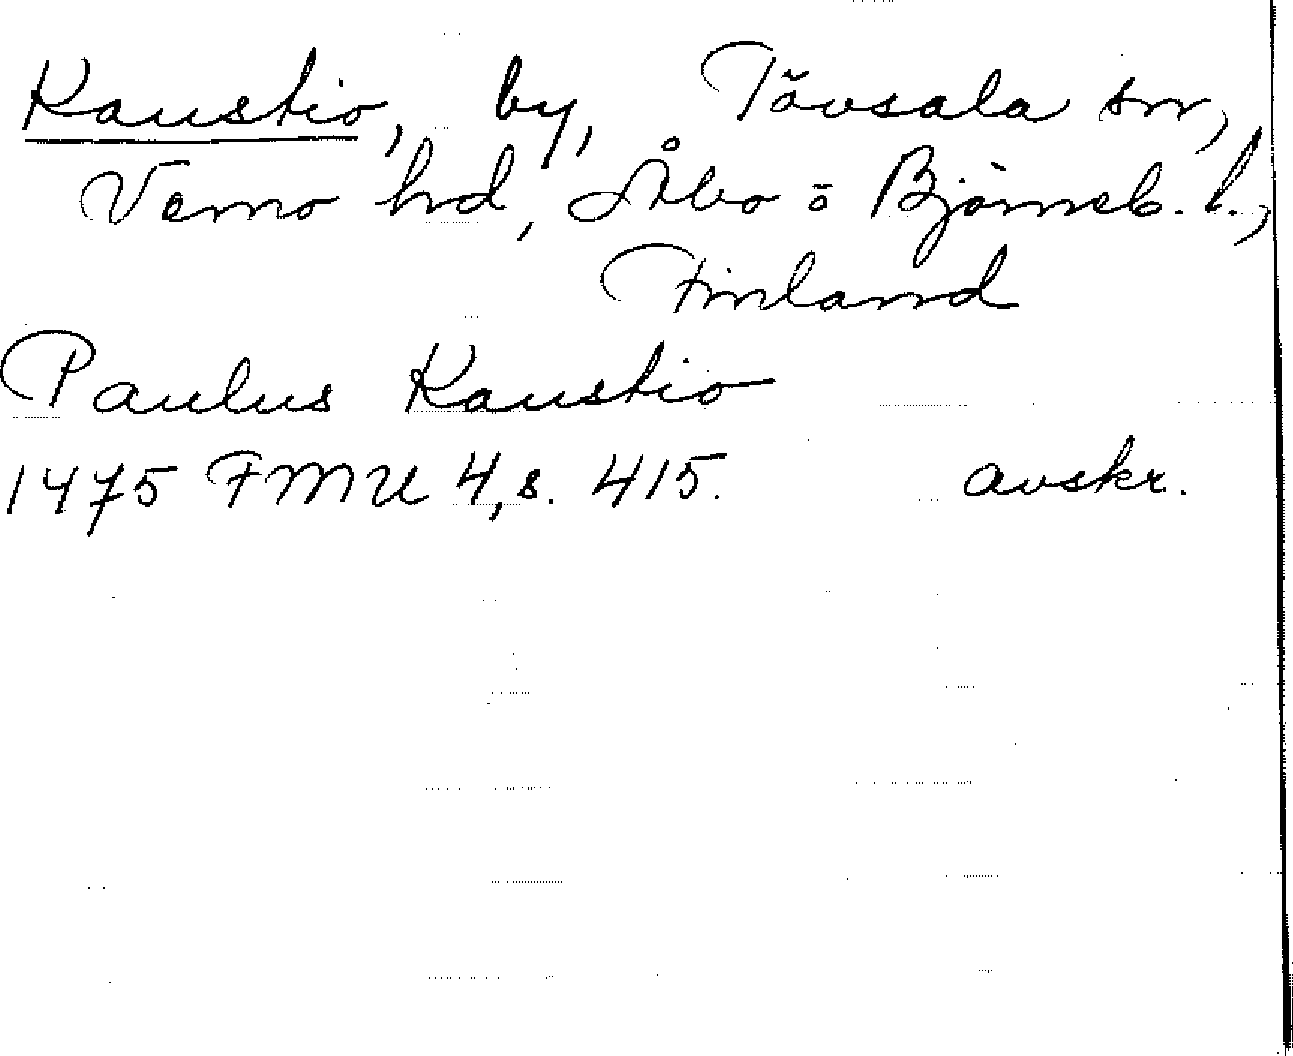 Kaustio, by, Tövsala sn,
Vemo hd, Åbo o Björneb. l.,
Finland
Paulus Kaustio
1475 FMU 4, s. 415. avskr.